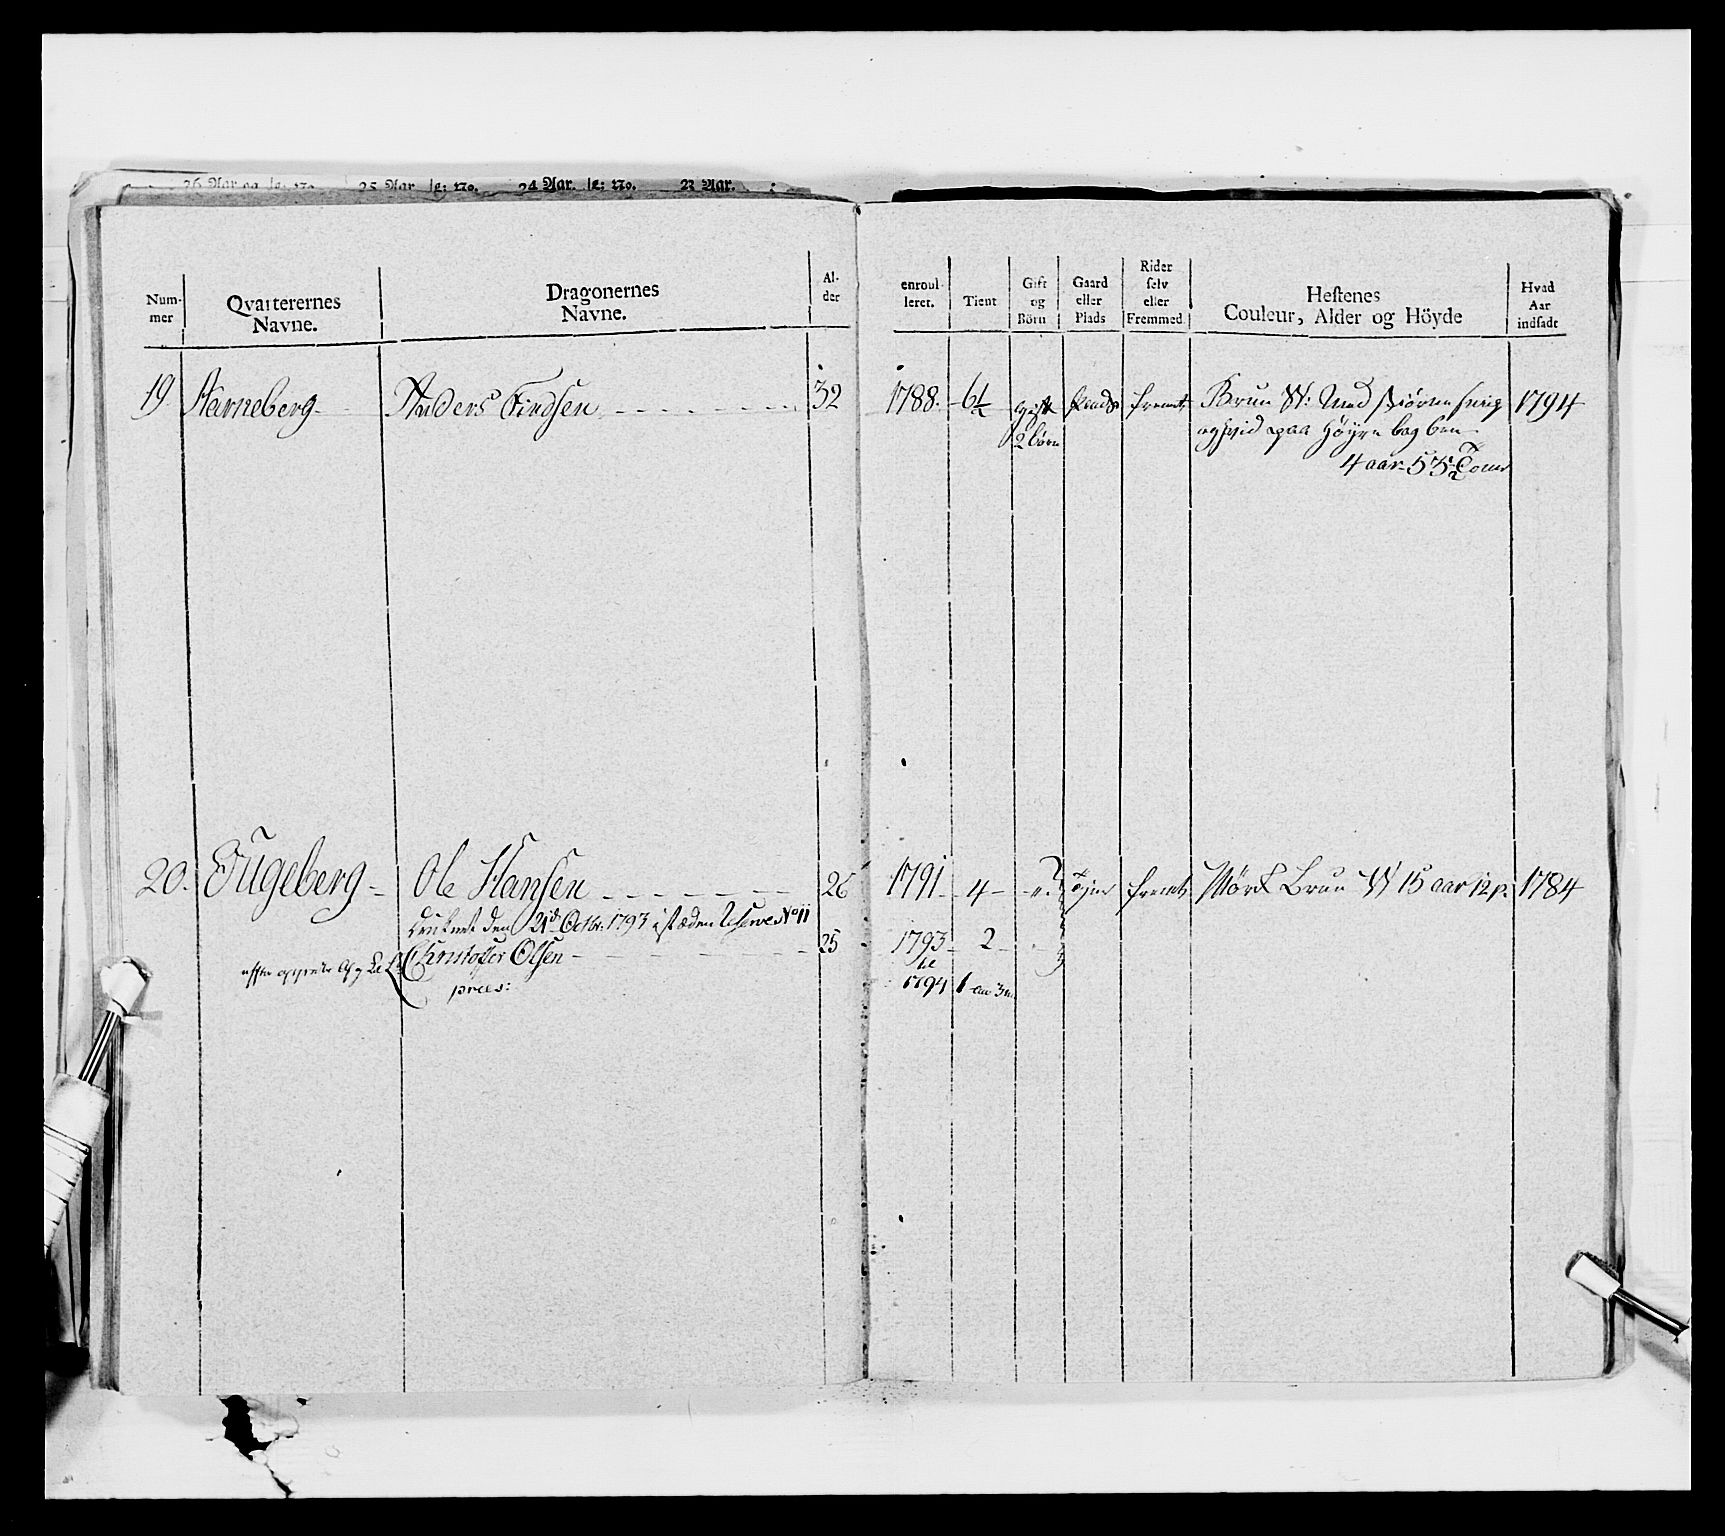 26 Aar og 25 Aar 24 Aar. 23 Aar.
Num-
mer
Qvarterernes
Navne.
Dragonernes
Navne.
Al-
der
enroul-
leret.
Tient
Gift
og
Börn
Gaard
eller
Plads
Rider
selv
eller
Fremmed
Hestenes
Couleur, Alder og Höyde
Hvad
Aar
indsadt
19 Harneberg Anders Findsen 32 1788 6½ gift Plads fremt Brun W: Med 1794
2 börn og hvid paa Höyre bag ben
4 aar
20. Ougeberg Ole Hansen 26 1791 4 fremt Mörk Brun W 15 aar 12 p. 1784
den 21d Octbr: 1793 i stæden Reserve No 11
Christoffer Olsen 25 1793 2
1794 1